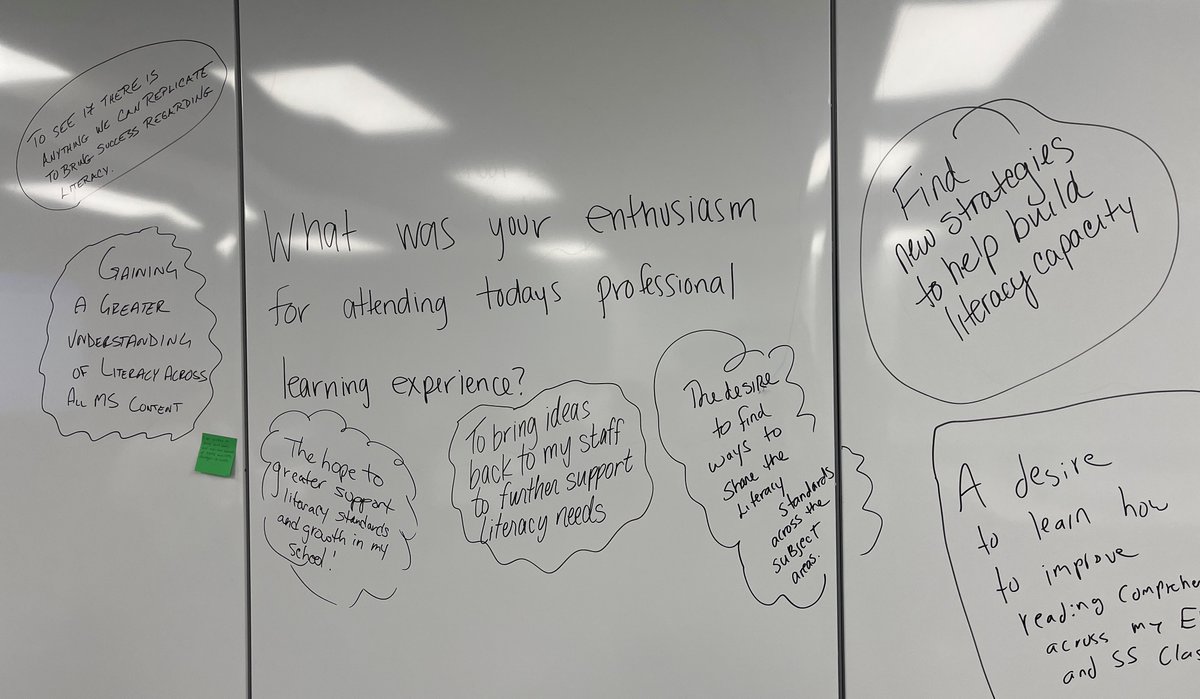 TO SEE IF THERE IS
ANYTHING WE CAN REPLICATE
TO BRING SUCCESS REGARDING
LITERACY.
GAINING
A GREATER
UNDERSTANDING
OF LITERACY ACROSS
ALL MS CONTENT
What was your enthusiasm
for attending todays professional
learning experience?
The hope to
greater support
literacy standards
and growth in my
school!
To bring ideas
back to my staff
to further support
Literacy needs
The desire
to find
ways to
share the
Literacy
standards
across the
subject
areas.
Find
new strategies
to help build
literacy capacity
A desire
to learn how
to improve
reading Comprehe
across my E
and SS Clas